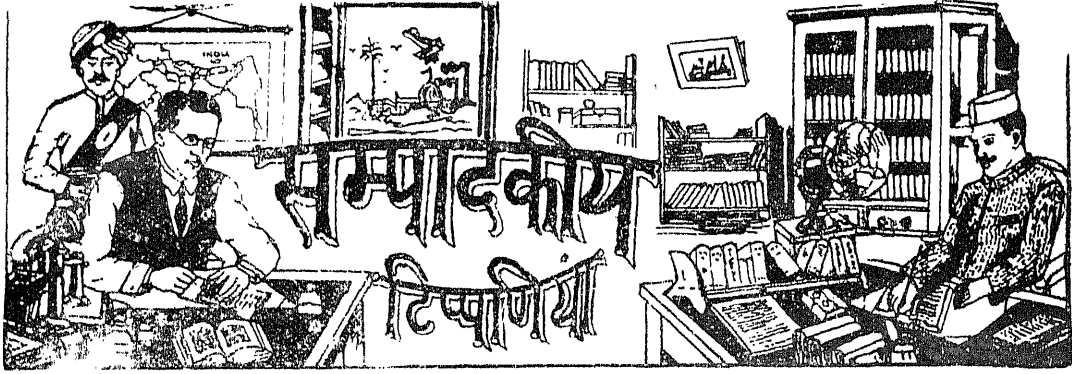 INDIA
सम्पादकीय
टिप्पणियाँ